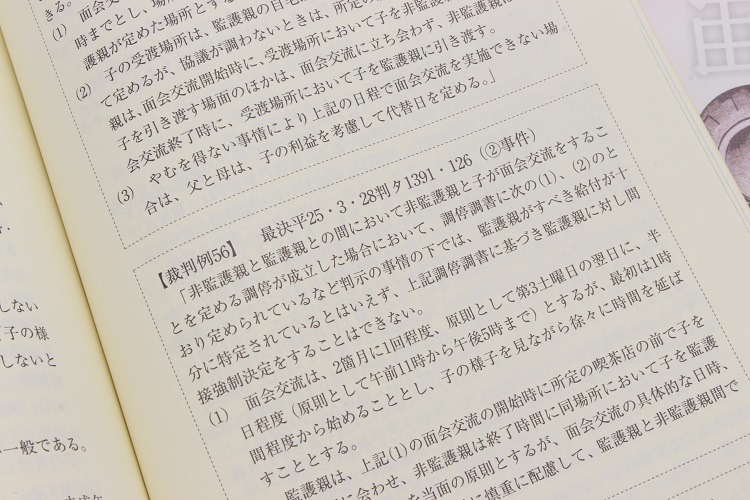 きる。
(1) 面会交
時までとし、場
護親が定めた場所とする
子の受渡場所は、監護親の自宅
(2)
て定めるが、協議が調わないときは、所定の
親は、面会交流開始時に、受渡場所において子を非監護親に
子を引き渡す場面のほかは、面会交流に立ち会わず、非監護親は
会交流終了時に、受渡場所において子を監護親に引き渡す。
(3) やむを得ない事情により上記の日程で面会交流を実施できない場
合は、父と母は、子の利益を考慮して代替日を定める。」
【裁判例56】 最決平25・3・28判タ1391・126(②事件)
「非監護親と監護親との間において非監護親と子が面会交流をするこ
とを定める調停が成立した場合において、調停調書に次の(1)、(2)のと
おり定められているなど判示の事情の下では、監護親がすべき給付が十
分に特定されているとはいえず、上記調停調書に基づき監護親に対し間
接強制決定をすることはできない。
(1) 面会交流は、2箇月に1回程度、原則として第3土曜日の翌日に、半
日程度(原則として午前11時から午後5時まで)とするが、最初は1時
間程度から始めることとし、子の様子を見ながら徐々に時間を延ば
すこととする。
監護親は、上記(1)の面会交流の開始時に所定の喫茶店の前で子を
に会わせ、非監護親は終了時間に同場所において子を監護
を当面の原則とするが、面会交流の具体的な日時、
に慎重に配慮して、監護親と非監護親間で
しない
子の様
しないと
一般である。